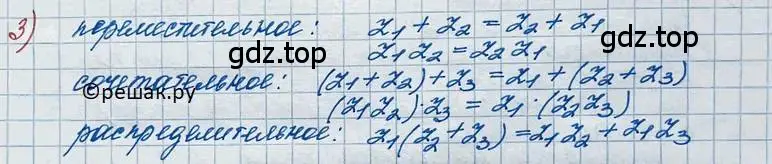 3) переместительное: z₁ + z₂ = z₂ + z₁
gdz.top gdz.top
z₁z₂ = z₂z₁
сочетательное: (z₁ + z₂) + z₃ = z₁ + (z₂ + z₃)
©решак.ру
(z₁z₂)·z₃ = z₁·(z₂z₃)
gdz.top gdz.top
распределительное: z₁(z₂ + z₃) = z₁z₂ + z₁z₃